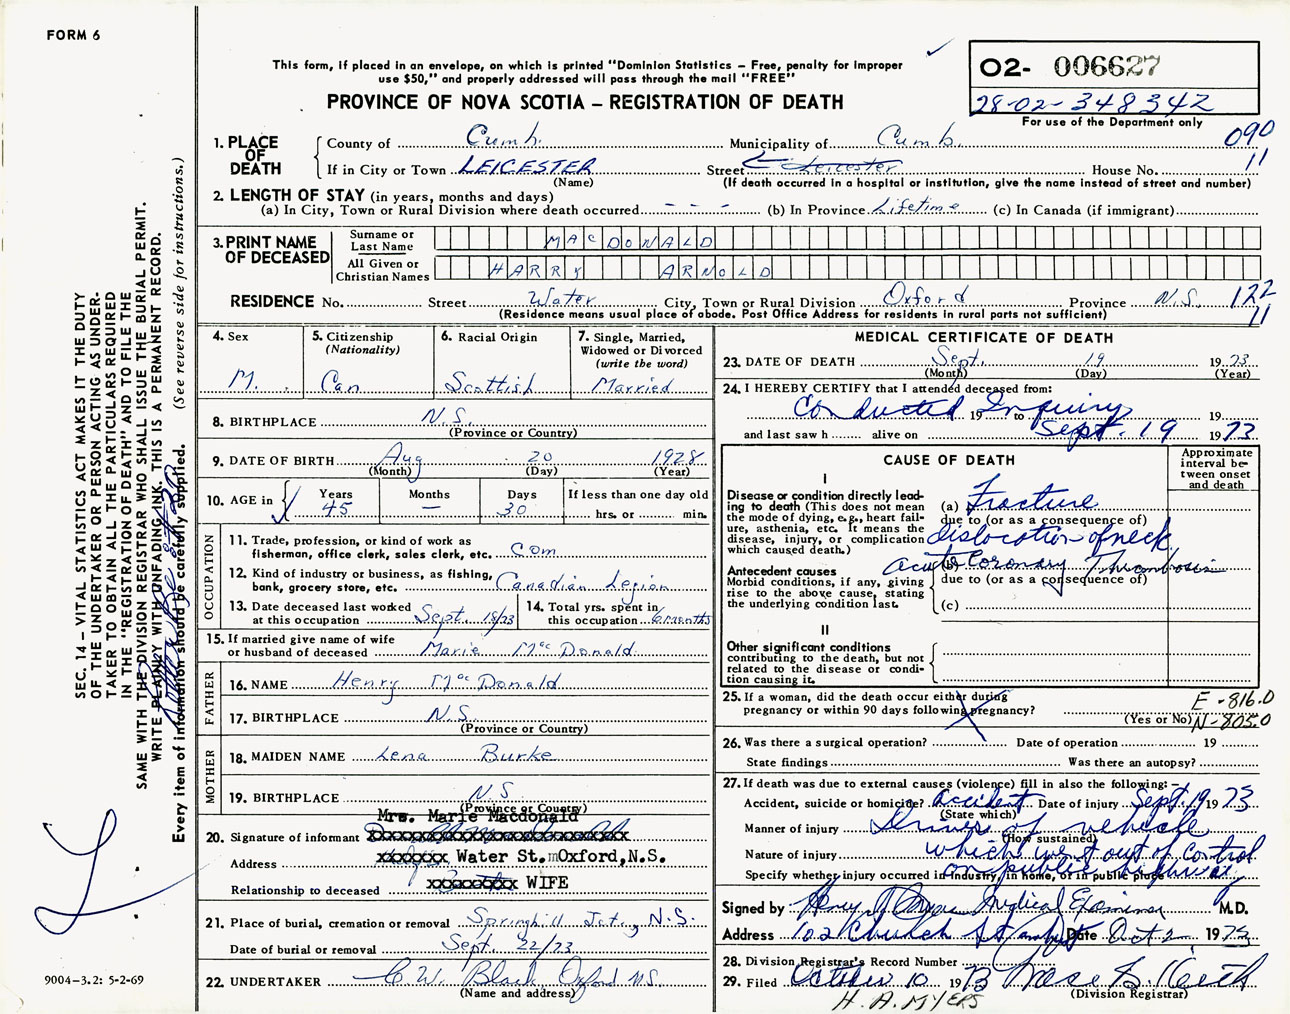 FORM 6
This form, if placed in an envelope, on which is printed "Dominion Statistics – Free, penalty for improper
use $50," and properly addressed will pass through the mail "FREE"
PROVINCE OF NOVA SCOTIA – REGISTRATION OF DEATH
O2- 006627
28-02-348342
For use of the Department only
090
11
1. PLACE OF DEATH
County of Cumb. Municipality of Cumb.
If in City or Town LEICESTER Street Leicester House No.
(Name) (If death occurred in a hospital or institution, give the name instead of street and number)
2. LENGTH OF STAY (in years, months and days)
(a) In City, Town or Rural Division where death occurred - - - (b) In Province Lifetime (c) In Canada (if immigrant)
3. PRINT NAME OF DECEASED
Surname or Last Name MACDONALD
All Given or Christian Names HARRY ARNOLD
RESIDENCE No. Street Water City, Town or Rural Division Oxford Province N.S. 122
11
(Residence means usual place of abode. Post Office Address for residents in rural parts not sufficient)
4. Sex
M.
5. Citizenship
(Nationality)
Can
6. Racial Origin
Scottish
7. Single, Married,
Widowed or Divorced
(write the word)
Married
8. BIRTHPLACE N.S.
(Province or Country)
9. DATE OF BIRTH Aug 20 1928
(Month) (Day) (Year)
10. AGE in Years Months Days If less than one day old
45 — 30 hrs. or min.
OCCUPATION
11. Trade, profession, or kind of work as
fisherman, office clerk, sales clerk, etc. Com
12. Kind of industry or business, as fishing,
bank, grocery store, etc. Canadian Legion
13. Date deceased last worked
at this occupation Sept. 18/73
14. Total yrs. spent in
this occupation 6 months
15. If married give name of wife
or husband of deceased Marie McDonald
FATHER
16. NAME Henry McDonald
17. BIRTHPLACE N.S.
(Province or Country)
MOTHER
18. MAIDEN NAME Lena Burke
19. BIRTHPLACE N.S
(Province or Country)
Mrs. Marie Macdonald
20. Signature of informant
Address xxxxxxx Water St. mOxford,N.S.
Relationship to deceased WIFE
21. Place of burial, cremation or removal Springhill Jct., N.S.
Date of burial or removal Sept. 22/73
22. UNDERTAKER C.W. Black Oxford N.S.
(Name and address)
MEDICAL CERTIFICATE OF DEATH
23. DATE OF DEATH Sept. 19 1973
(Month) (Day) (Year)
24. I HEREBY CERTIFY that I attended deceased from:
Conducted 19 Inquiry to 19
and last saw h alive on Sept. 19 1973
CAUSE OF DEATH
Approximate
interval be-
tween onset
and death
I
Disease or condition directly lead-
ing to death (This does not mean
the mode of dying, e.g., heart fail-
ure, asthenia, etc. It means the
disease, injury, or complication
which caused death.)
(a) Fracture
due to (or as a consequence of)
dislocation of neck
Antecedent causes
Morbid conditions, if any, giving
rise to the above cause, stating
the underlying condition last.
(b) acute Coronary Thrombosis
due to (or as a consequence of)
(c)
II
Other significant conditions
contributing to the death, but not
related to the disease or condi-
tion causing it.
25. If a woman, did the death occur either during
pregnancy or within 90 days following pregnancy?
(Yes or No)
E-816.0
N-805.0
26. Was there a surgical operation? Date of operation 19
State findings Was there an autopsy?
27. If death was due to external causes (violence) fill in also the following:–
Accident, suicide or homicide? accident Date of injury Sept. 19 1973
(State which)
Manner of injury driver of vehicle
(How sustained)
Nature of injury which went out of control
Specify whether injury occurred in industry, in home, or in public place on public highway
Signed by Medical Examiner M.D.
Address 102 Church St Amherst Date Oct 2 1973
28. Division Registrar's Record Number
29. Filed October 10 1973
(Division Registrar)
H.A. MYERS
SEC. 14 – VITAL STATISTICS ACT MAKES IT THE DUTY
OF THE UNDERTAKER OR PERSON ACTING AS UNDER-
TAKER TO OBTAIN ALL THE PARTICULARS REQUIRED
IN THE "REGISTRATION OF DEATH" AND TO FILE THE
SAME WITH THE DIVISION REGISTRAR WHO SHALL ISSUE THE BURIAL PERMIT.
WRITE PLAINLY WITH UNFADING INK. THIS IS A PERMANENT RECORD.
Every item of information should be carefully supplied. (See reverse side for instructions.)
9004-3.2: 5-2-69